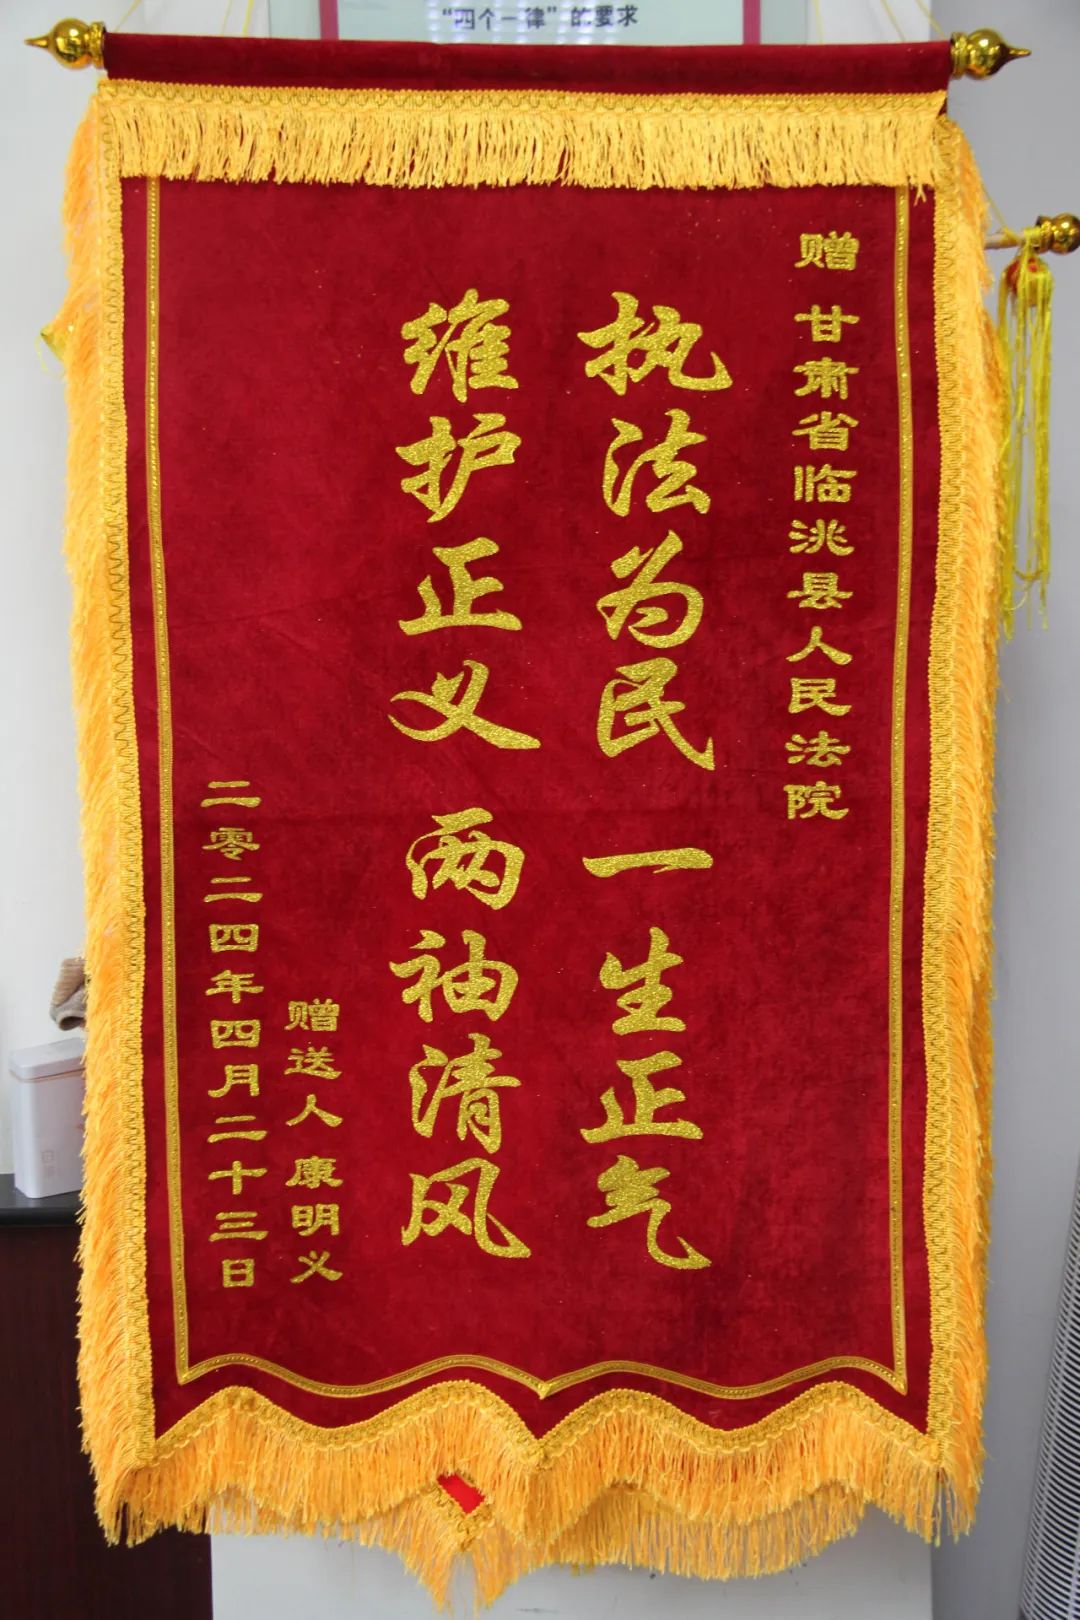 “四个一律”的要求
赠 甘肃省临洮县人民法院
执法为民 一生正气
维护正义 两袖清风
赠送人 康明义
二零二四年四月二十三日